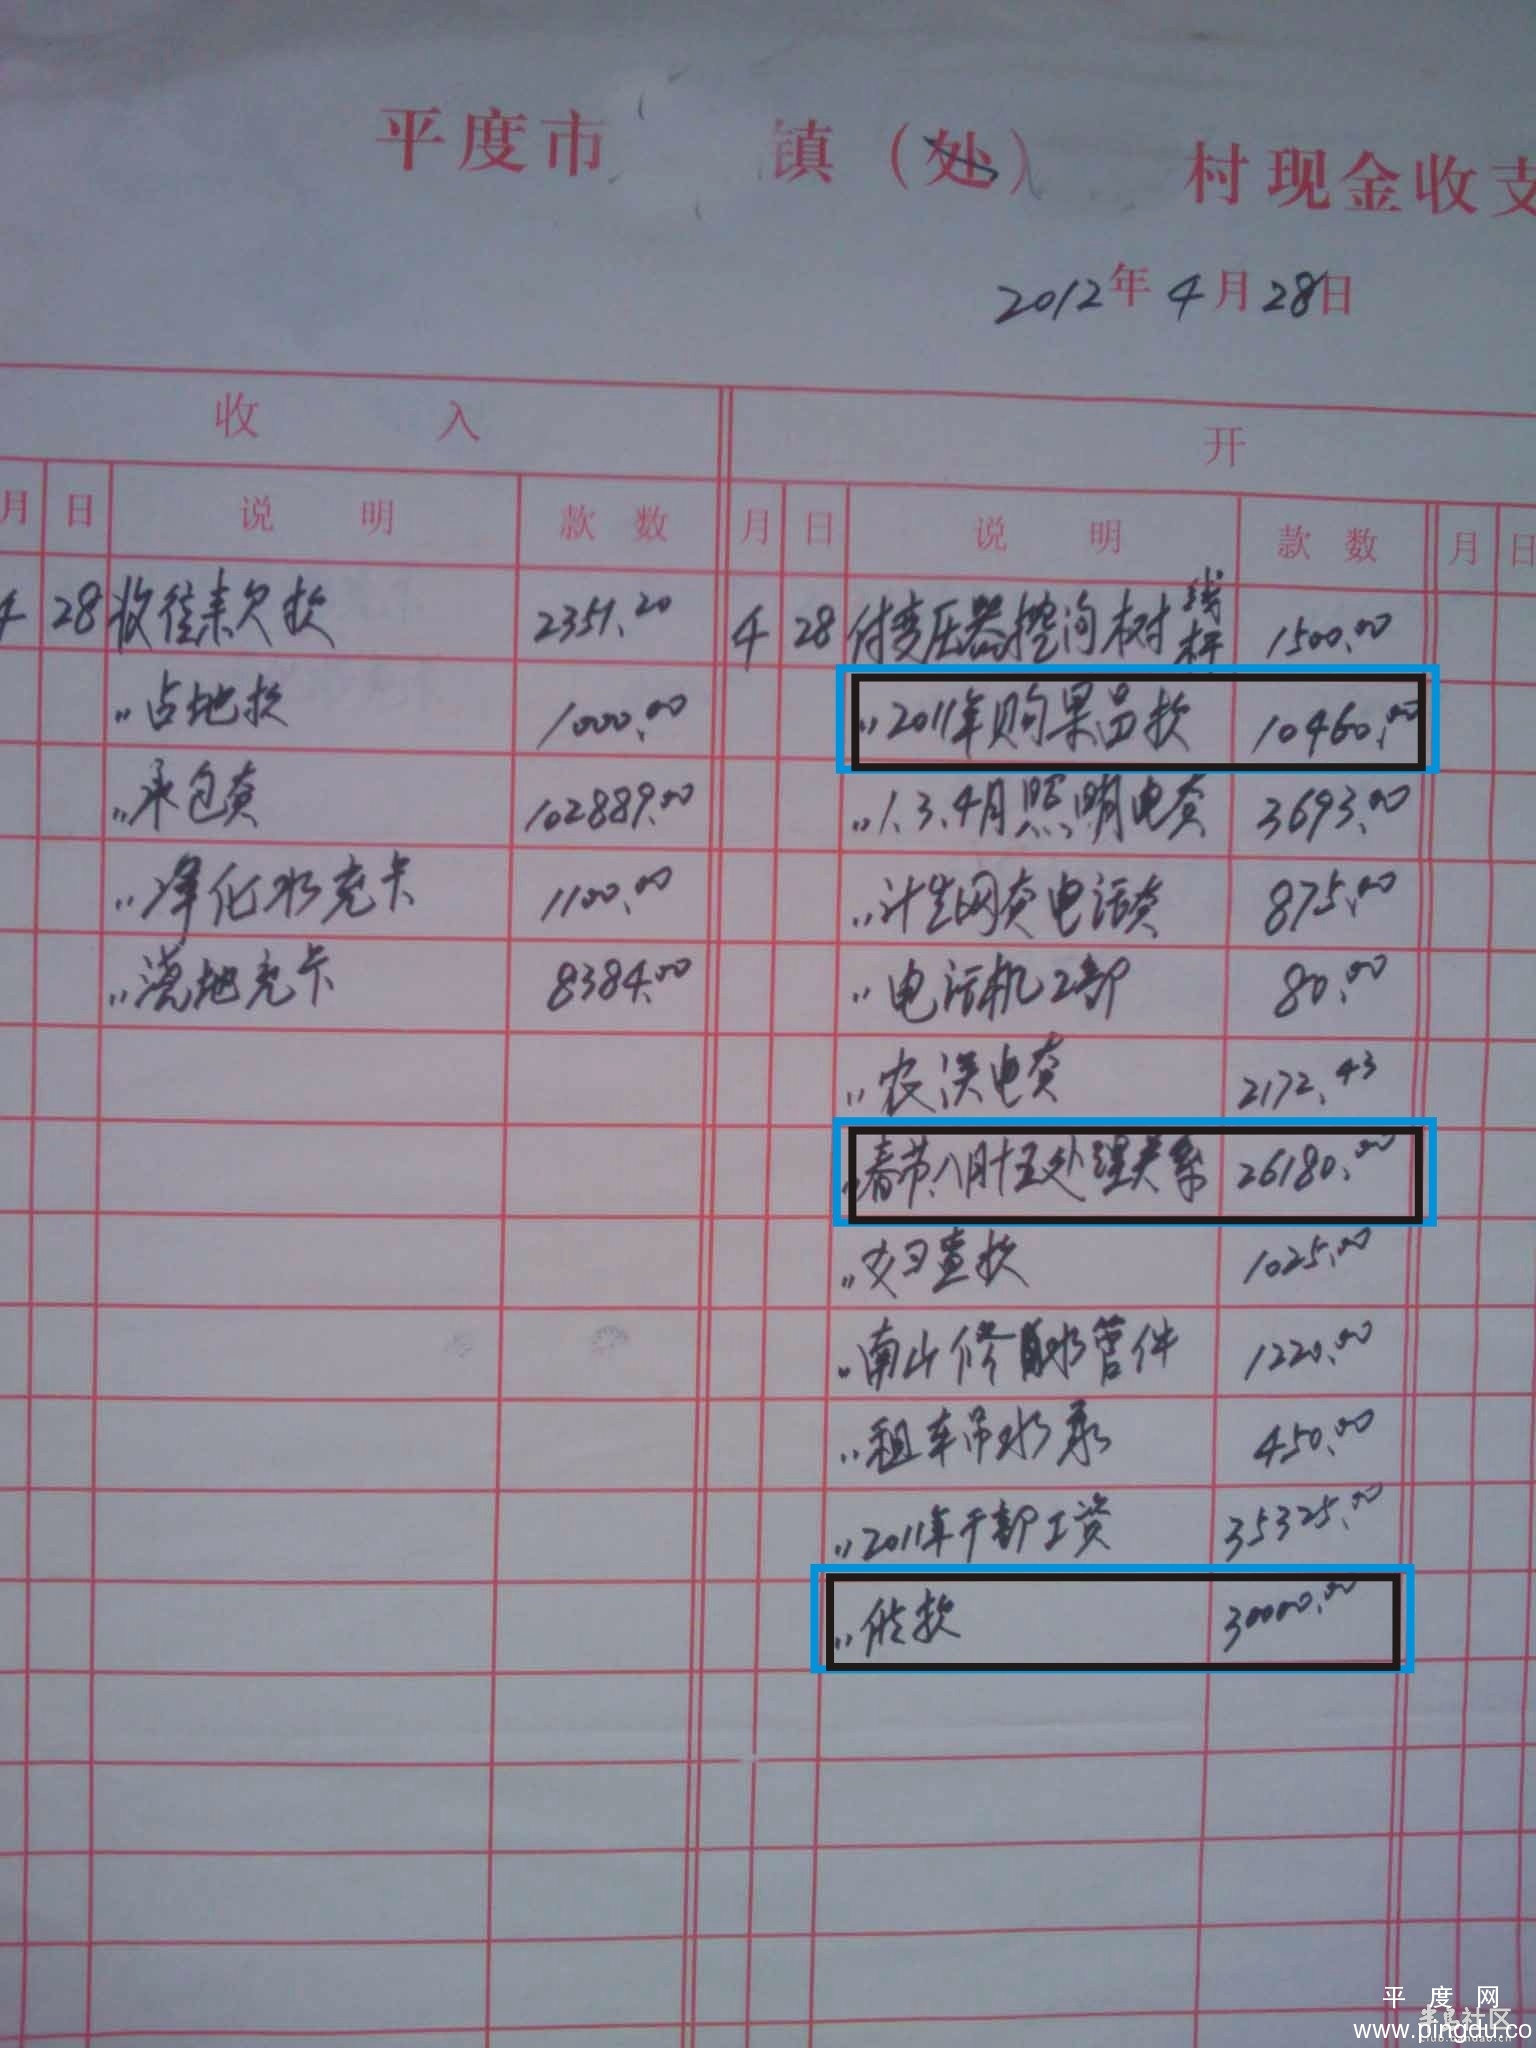 平度市 镇（处） 村现金收支
2012年4月28日
收 入 开
月 日 说 明 款 数 月 日 说 明 款 数 月 日
4 28 收往来欠款 2351.20 4 28 付变压器挖沟树线杆 1500.00
〃占地款 1000.00 〃2011年购果品款 10460.00
〃承包费 102889.00 〃1.3.4月照明电费 3693.00
〃净化水充卡 1100.00 〃计生网费电话费 875.00
〃浇地充卡 8384.00 〃电话机2部 80.00
〃农灌电费 2172.43
〃春节、八月十五处理关系 26180.00
〃 款 1025.00
〃南山修 水管件 1220.00
〃租车吊水泵 450.00
〃2011年干部工资 35325.00
〃 款 30000.00
平 度 网
社区
www.pingdu.co